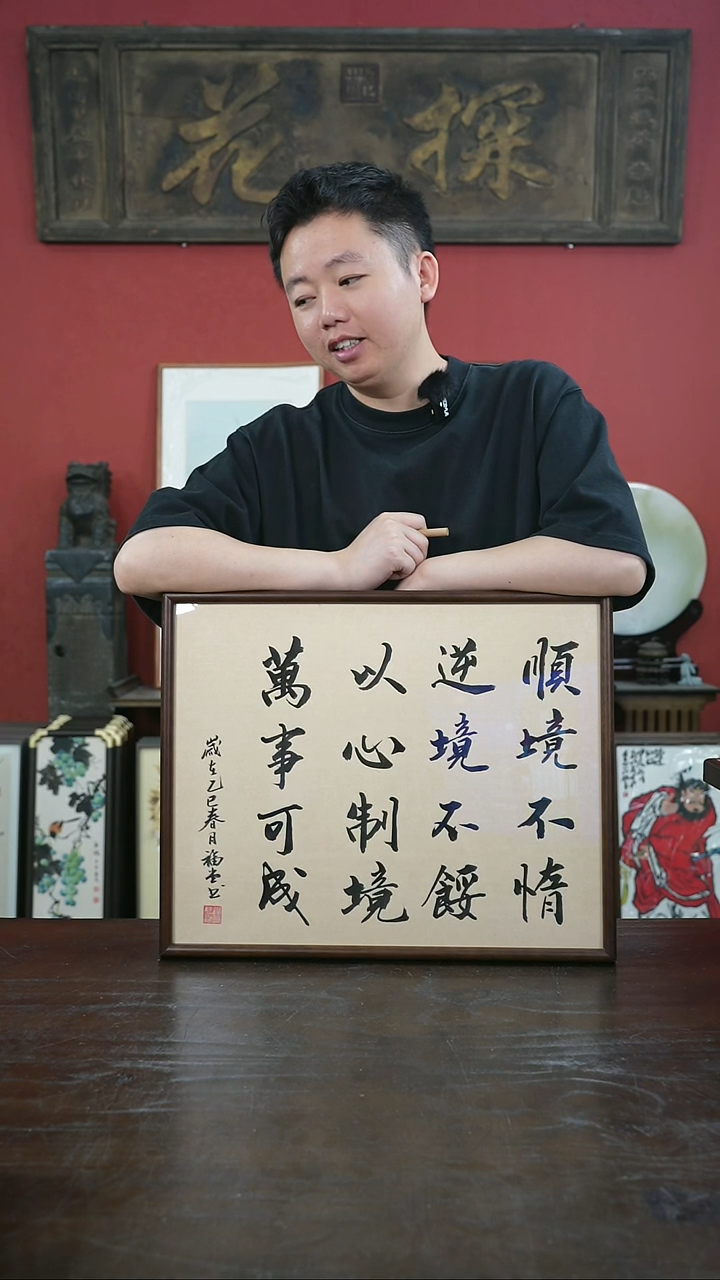 探花
順境不惰
逆境不餒
以心制境
萬事可成
歲在乙巳春月福堂书